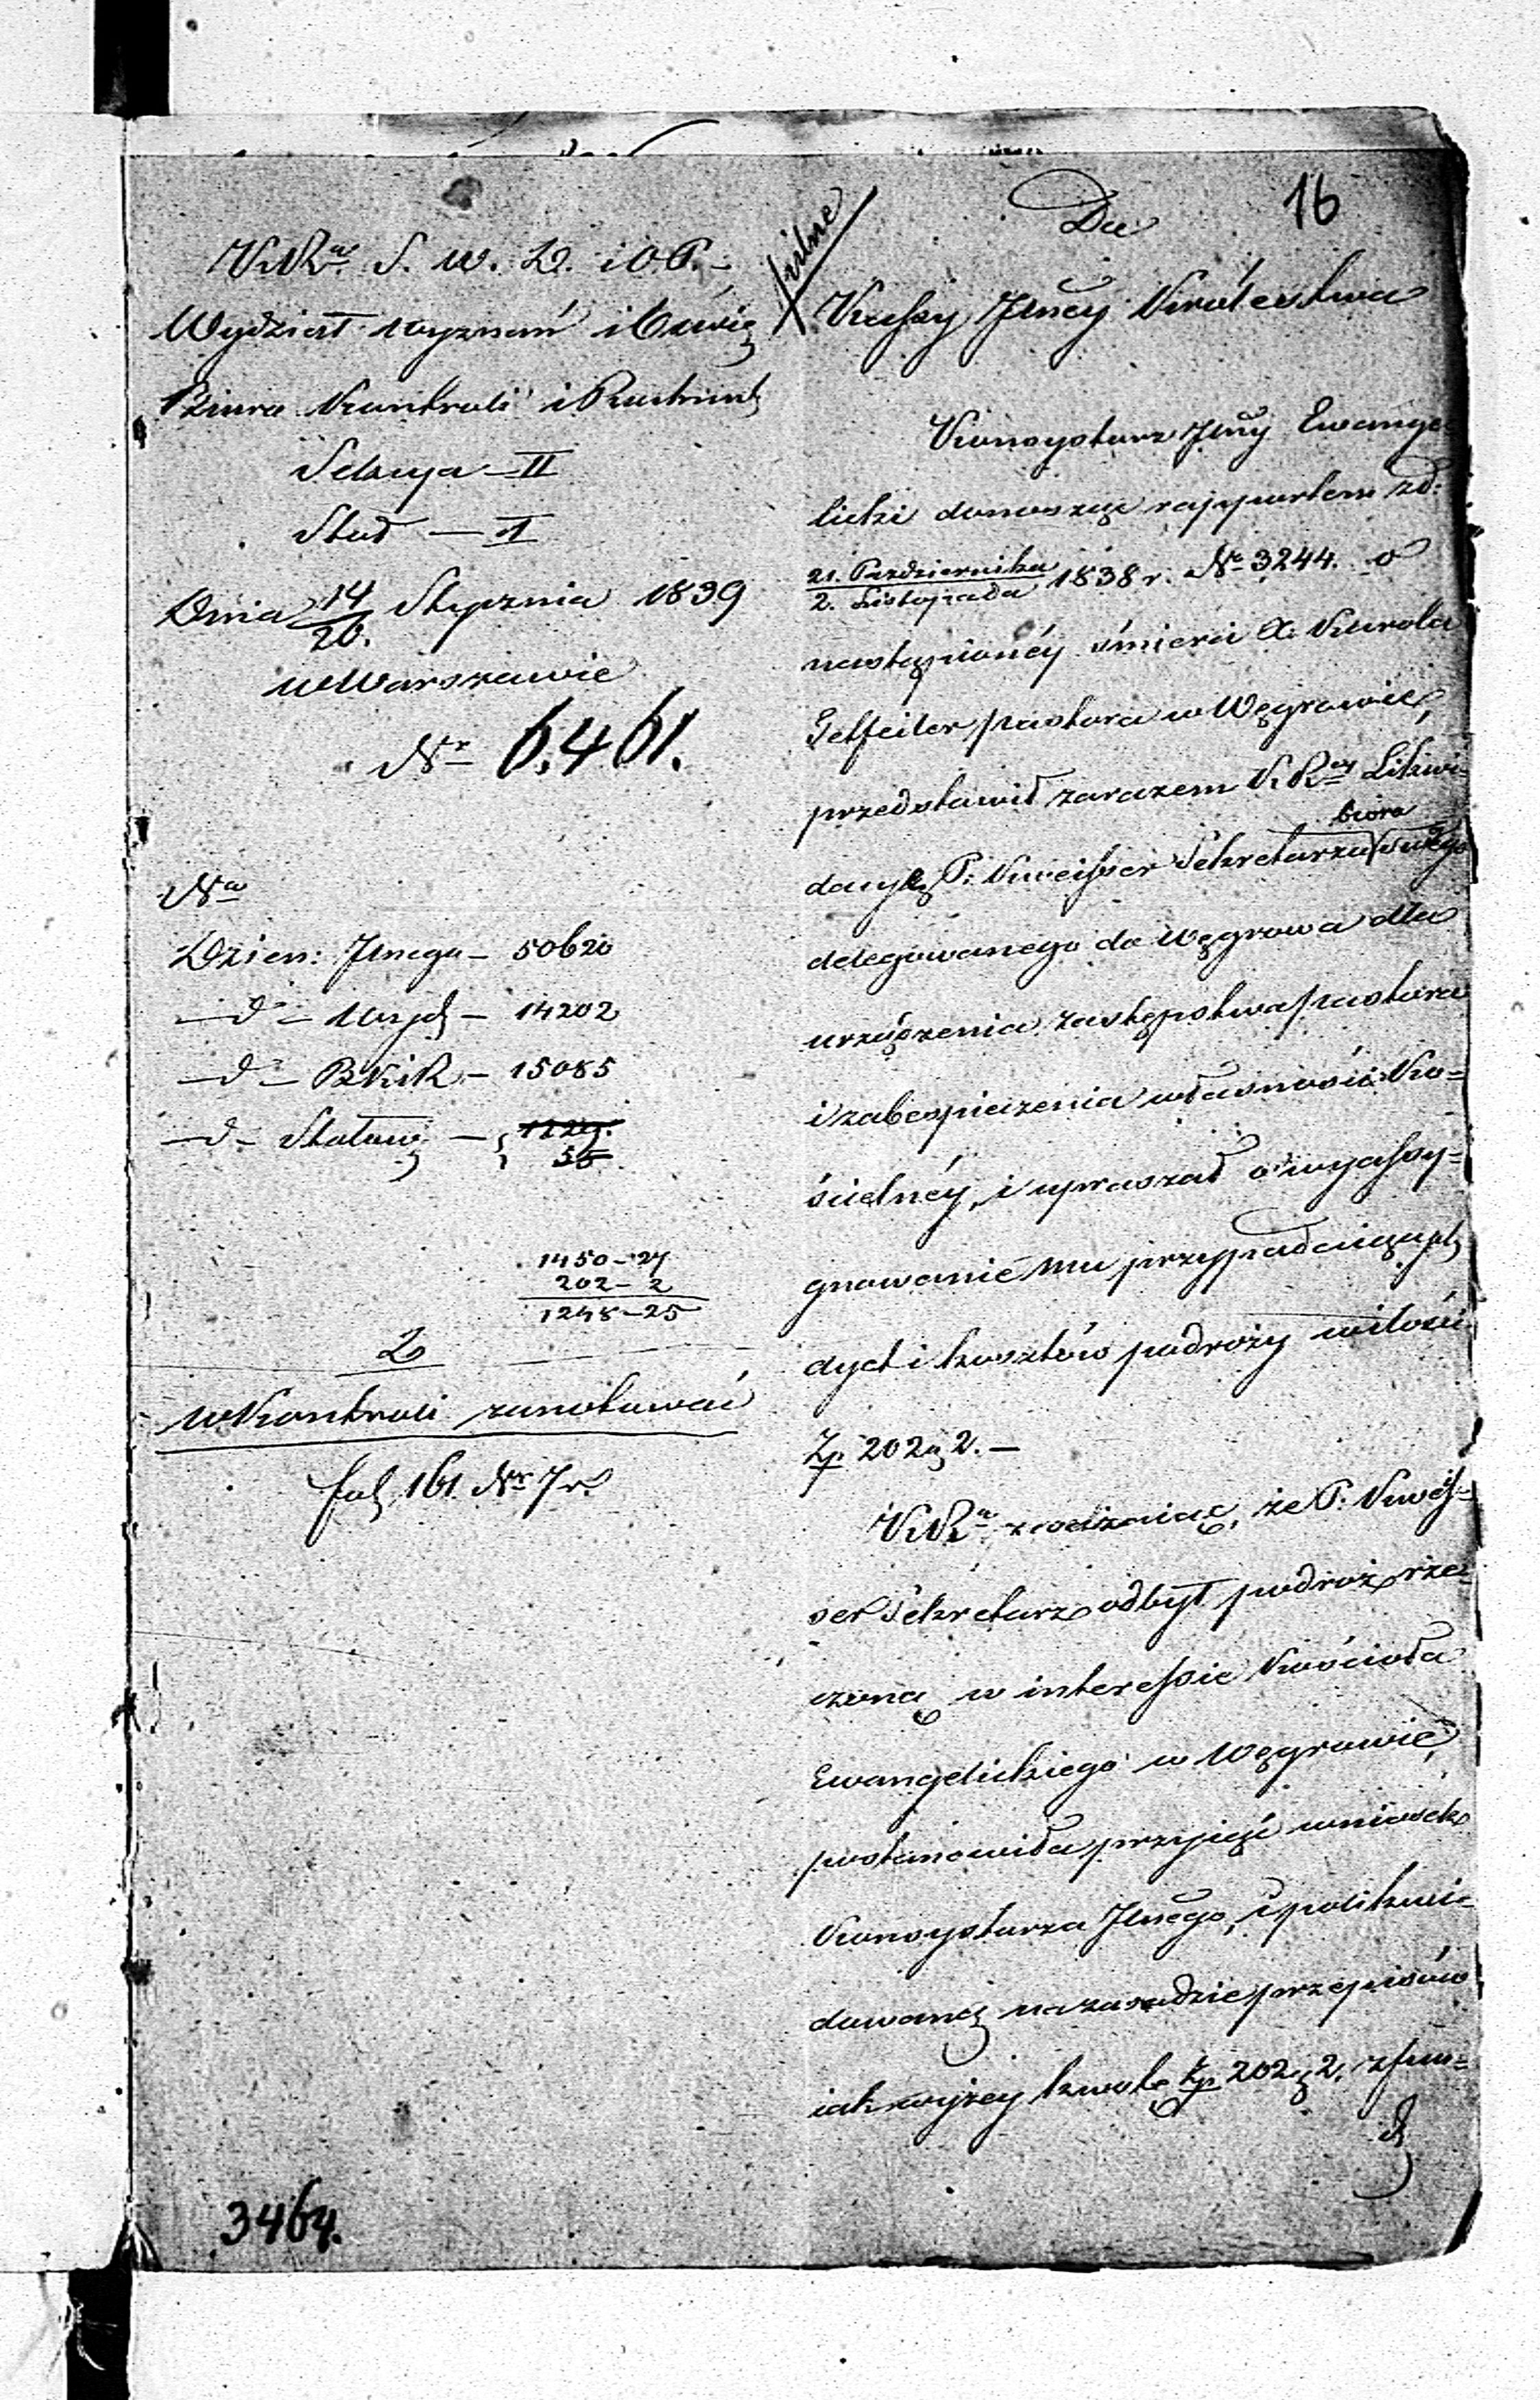 16
K.R.a S. W. D. i O. P. –
Wydział wyznań i Oświec
Biuro Kontroli i Rachunk
Sekcya – II
Stoł – 1
Dnia 14/26. Stycznia 1839
w Warszawie
Nr 6,461.
Na
Dzien: Jlnego – 50620
– d° – Wydz – 14202
– d° – BKiR. – 15085
– d – Stołowy –
1450–27
202–2
1248–25
2
w Kontroli zanotować
fol 161 Nr 7 r.
3464.
pilne
Do
Kassy Jlnéy Królestwa
Konsystorz Jlny Ewange
licki donosząc rapportem z d:
21. Pazdziernika / 2. Listopada 1838 r. Nr 3244. o
nastąpionéy śmierci X. Karola
pastora w Węgrowie,
przedstawił zarazem K.R.y Likwi-
biora
dacyę P. Kweisser Sekretarza swego
delegowanego do Węgrowa dla
urządzenia zastępstwa pastora
i zabespieczenia własności Ko-
ścielnéy, i upraszał o wyassy-
gnowanie mu przypadaiących
dyet i kosztów podroży w ilości
Zp 202 g 2. –
K.R.a zważaiąc, że P. Kweis-
ser Sekretarz odbył podroż rze-
czoną w interessie Kościoła
Ewangelickiego w Węgrowie,
postanowiła przyiąć wniosek
Konsystorza Jlnego, i polikwi-
dowaną na zasadzie przepisów
iak wyżey kwotę Zp 202 g 2. z fun-